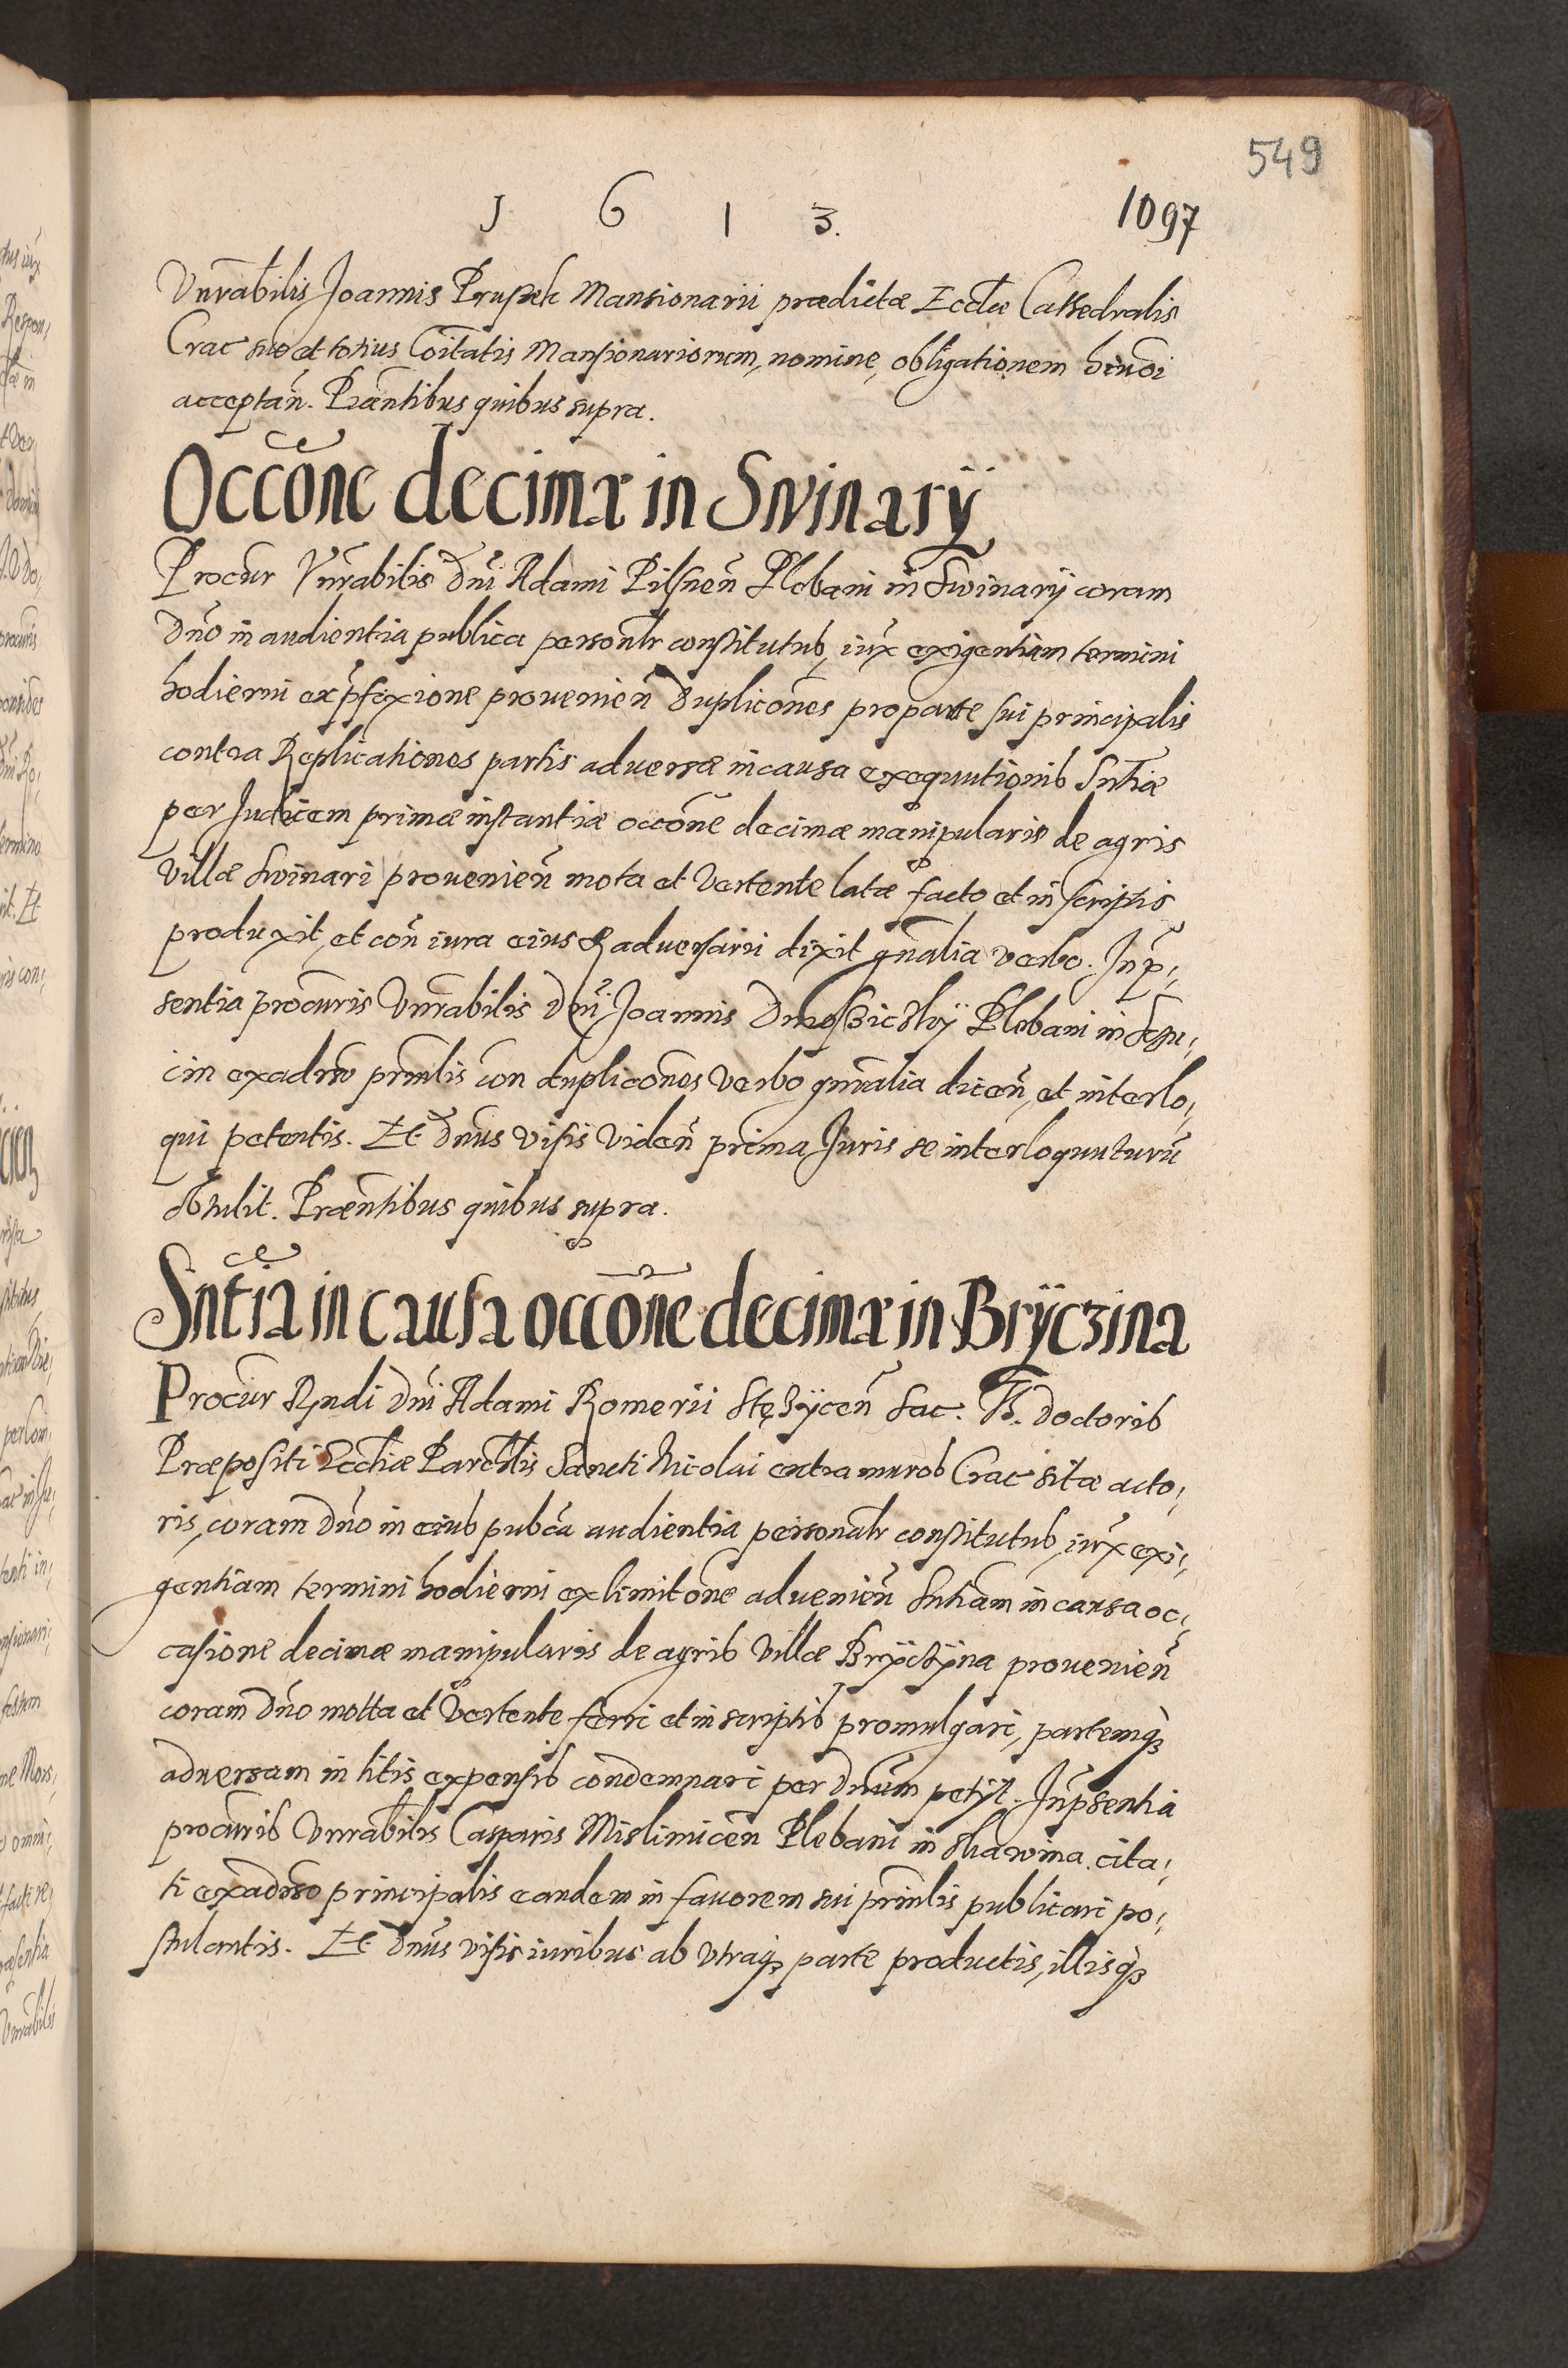 549
1 6 1 3.
1097
Vnrabilis Joannis Prussek Mansionarii prædictæ Eccliæ Cathedralis
Crac suo et totius Coitatis Mansionariorum, nomine, obligationem hmoi
acceptañ. Præñtibus quibus supra.
Occõne decimæ in Swinary
Procur Vnrabilis Dñi Adami Pilsneñ Plebani in Swinary coram
Dño in audientia publica personlr constitutus, iux exigentiam termini
hodierni ex pfixione provenieñ Duplicões pro parte sui principalis
contra Replicationes partis adversæ in causa exequutionis Sntiæ
per Judicem primæ instantiæ occõne decimæ manipularis de agris
villæ Swinari provenieñ mota et vertente latæ facto et in scriptis
produxit, et coñ iura eius adversarii dixit gñalia verbo. In p,
sentia procuris Vnrabilis Dñi Joannis Plebani in
cin ex adũso prinlis con duplicões verbo gñalia diceñ, et interlo,
qui petentis. Et Dñus visis videñ prima Juris se interloquuturũ
obtulit. Præñtibus quibus supra.
Sñtia in causa occõne decimæ in Bryczina
Procur Rndi Dñi Adami Romerii Stęzyceñ Sac. Th. Doctoris
Præpositi Eccliæ Parchlis Sancti Nicolai extra muros Crac sitæ acto,
ris, coram Dño in eius pubca audientia personalr constitutus, iux exi,
gentiam termini hodierni ex limitõne advenieñ Sntiam in causa oc,
casione decimæ manipularis de agris villæ Bryczyna provenieñ
coram Dño motta et vertente ferri et in scriptis promulgari, partemq3
adversam in litis expensis condemnari per Dñum petijt. In psentia
procuris Vnrabilis Casparis Mislimiceñ Plebani in Skawina cita,
ti ex adũso principalis eandem in favorem sui prinlis publicari po,
stulantis. Et Dñus visis iuribus ab utraq3 parte productis, illisq3